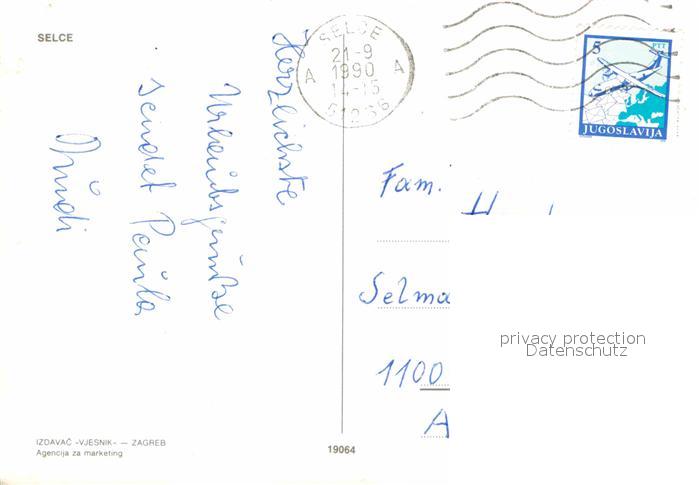 SELCE
SELCE
21-9
1990
14-15
51266
A A
5
PTT
JUGOSLAVIJA
Herzlichste
Urlaubsgrüße
sendet Paula
Fam. H
Selma
1100
A
privacy protection
Datenschutz
IZDAVAČ «VJESNIK» — ZAGREB
Agencija za marketing
19064